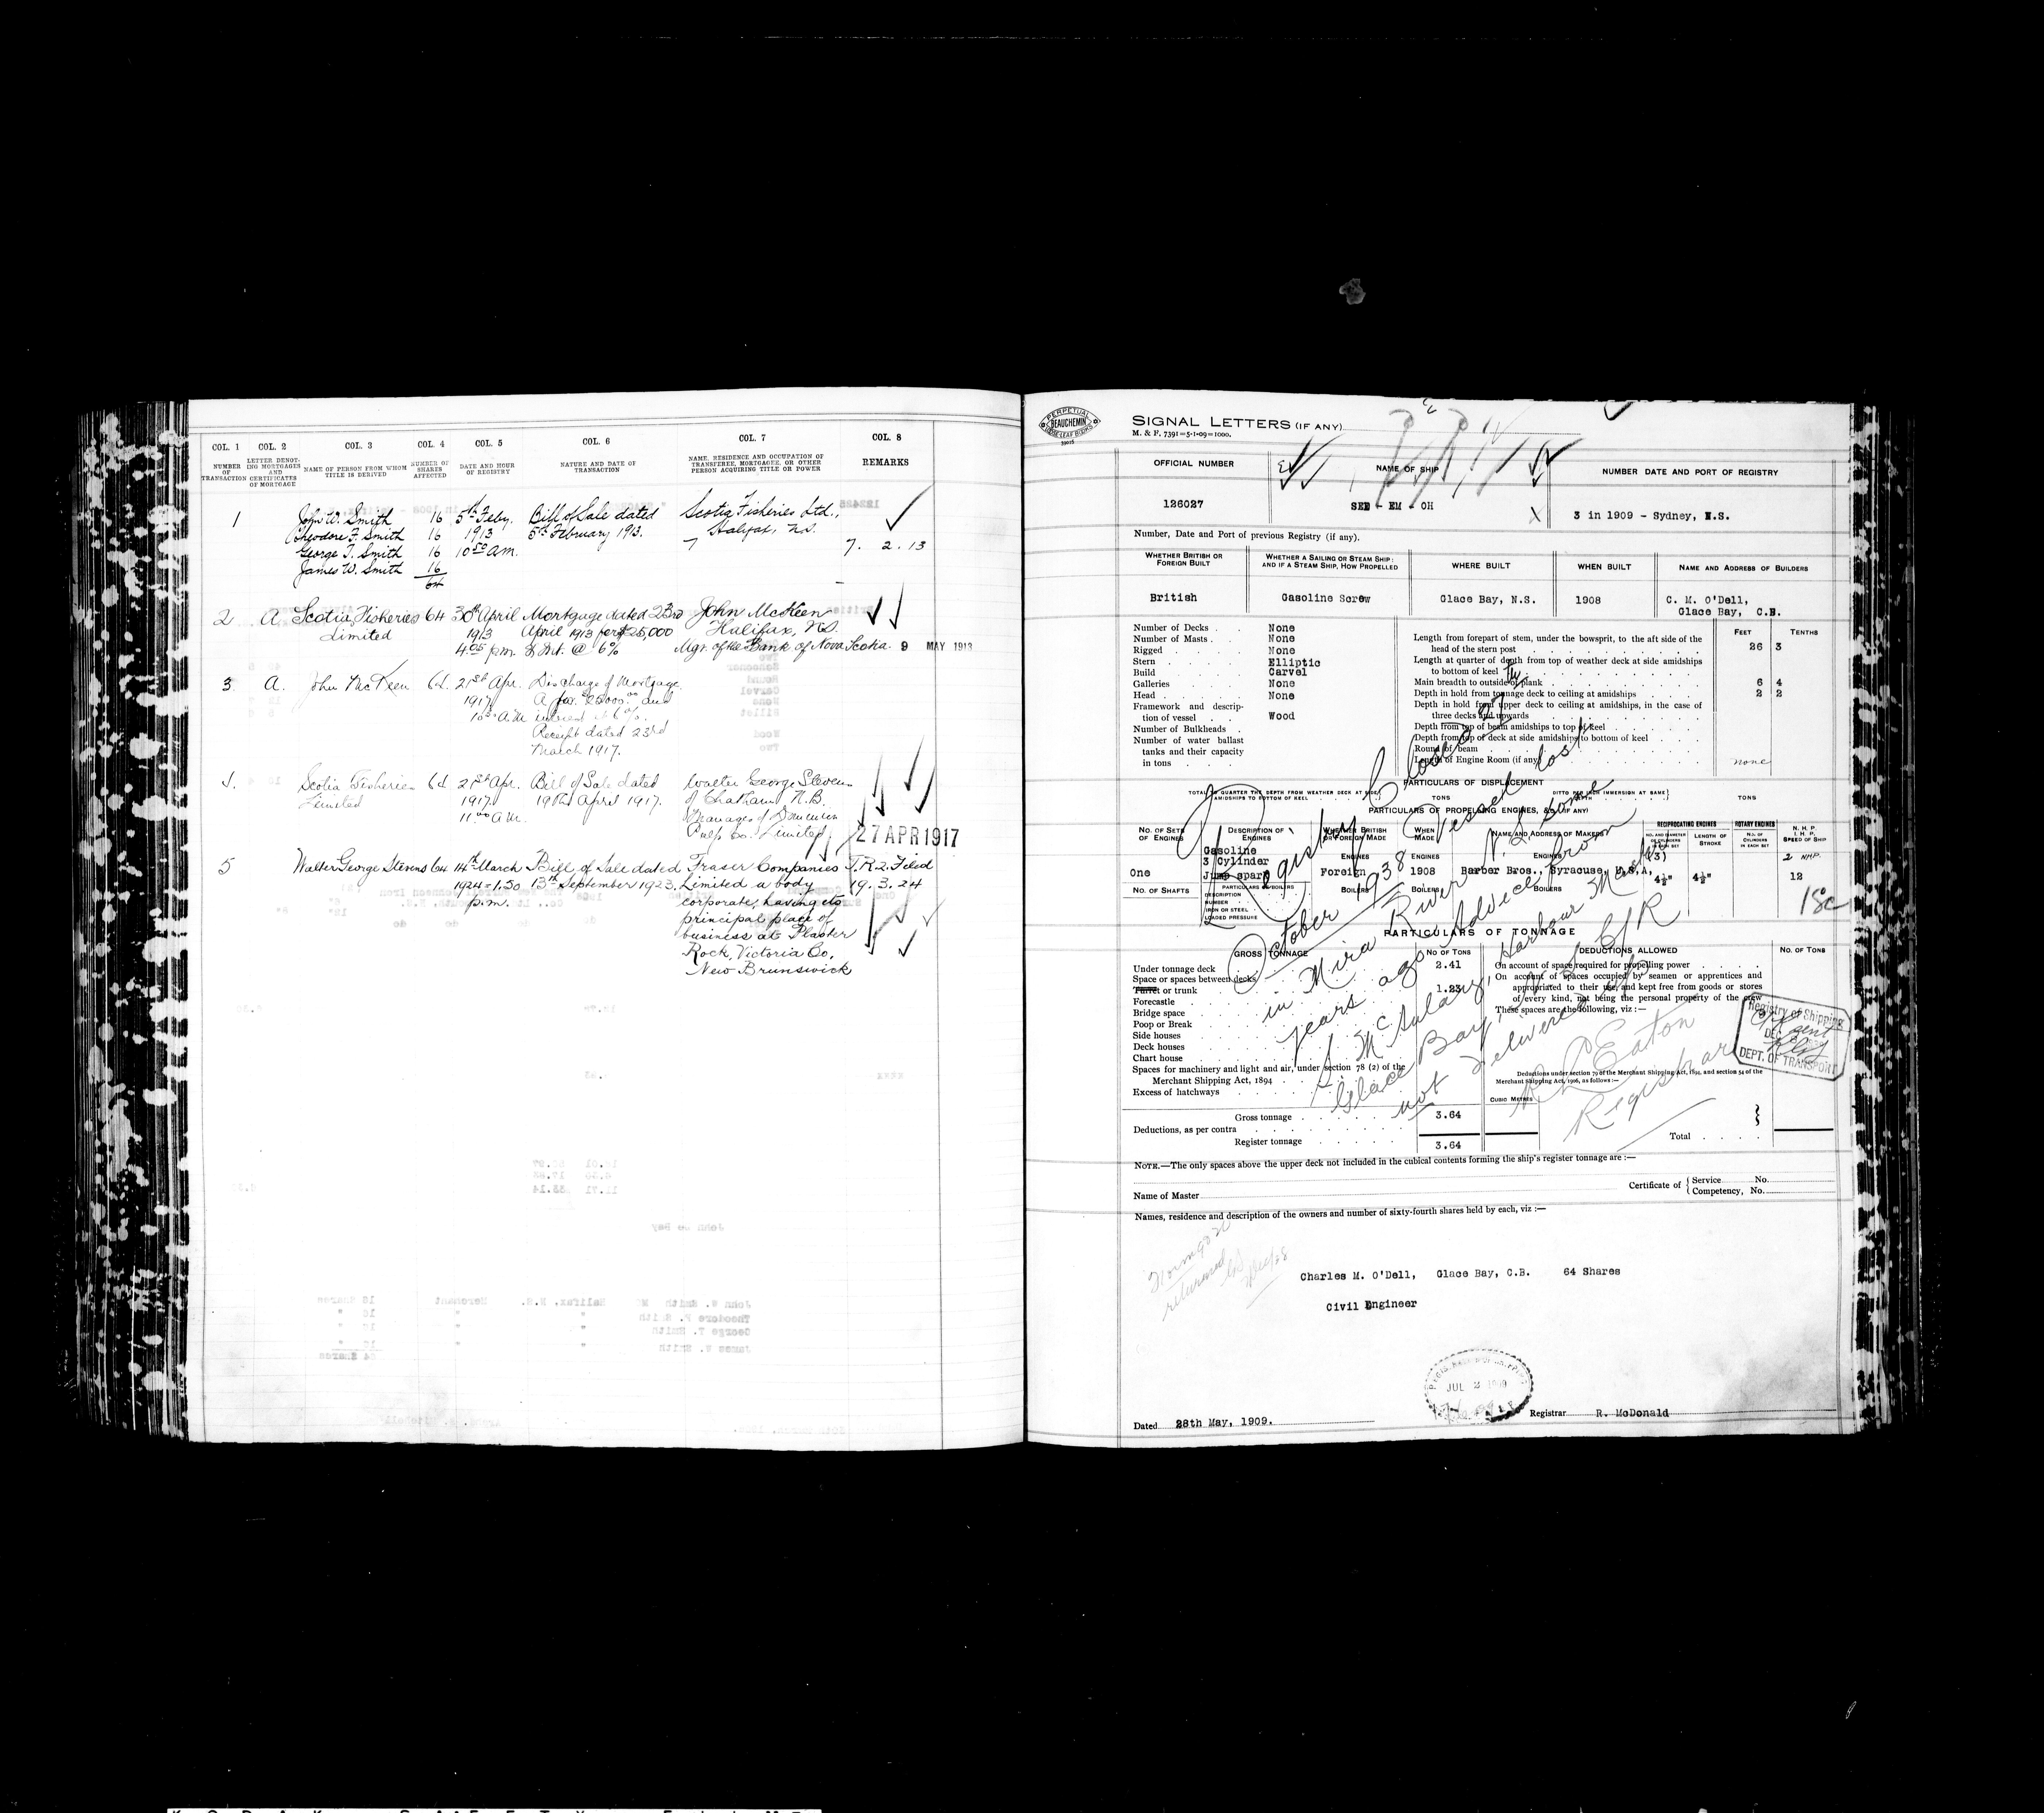 COL. 1 COL. 2 COL. 3 COL. 4 COL. 5 COL. 6 COL. 7 COL. 8
NUMBER OF TRANSACTION
LETTER DENOTING MORTGAGES AND CERTIFICATES OF MORTGAGE
NAME OF PERSON FROM WHOM TITLE IS DERIVED
NUMBER OF SHARES AFFECTED
DATE AND HOUR OF REGISTRY
NATURE AND DATE OF TRANSACTION
NAME, RESIDENCE AND OCCUPATION OF TRANSFEREE, MORTGAGEE, OR OTHER PERSON ACQUIRING TITLE OR POWER
REMARKS
1 John W. Smith 16 5th Feby. Bill of Sale dated Scotia Fisheries Ltd.,
Theodore F. Smith 16 1913 5th February 1913. Halifax, N.S.
George T. Smith 16 10 50 a.m. 7. 2. 13
James W. Smith 16
64
2 A. Scotia Fisheries 64 30th April Mortgage dated 23rd John McKeen
Limited 1913 April 1913 for $25,000 Halifax, N.S.
4.05 p.m. & Int. @ 6% Mgr. of the Bank of Nova Scotia. 9 MAY 1913
3. A. John McKeen 64. 21st Apr. Discharge of Mortgage
1917 A for $25000.00 and
10 a.m. interest at 6%.
Receipt dated 23rd
March 1917.
4. Scotia Fisheries 64 21st Apr. Bill of Sale dated Walter George Stevens
Limited 1917. 19th April 1917. of Chatham N.B.
11.00 a.m. Manager of Dominion
Pulp Co. Limited
27 APR 1917
5 Walter George Stevens 64 14th March Bill of Sale dated Fraser Companies T.R.2. Filed
1924 - 1.50 13th September 1923. Limited a body 19.3.24
p.m. corporate, having its
principal place of
business at Plaster
Rock, Victoria Co,
New Brunswick
PERPETUAL
BEAUCHEMIN
LOOSE LEAF BOOKS
SIGNAL LETTERS (IF ANY)
M. & F. 7391—5-1-09—1000.
OFFICIAL NUMBER NAME OF SHIP NUMBER DATE AND PORT OF REGISTRY
126027 SEE - EM - OH 3 in 1909 - Sydney, N.S.
Number, Date and Port of previous Registry (if any).
WHETHER BRITISH OR FOREIGN BUILT
WHETHER A SAILING OR STEAM SHIP: AND IF A STEAM SHIP, HOW PROPELLED
WHERE BUILT
WHEN BUILT
NAME AND ADDRESS OF BUILDERS
British Gasoline Screw Glace Bay, N.S. 1908 C. M. O'Dell,
Glace Bay, C.B.
Number of Decks . . None
Number of Masts . . None
Rigged . . . None
Stern . . . Elliptic
Build . . . Carvel
Galleries . . . None
Head . . . None
Framework and description of vessel . . Wood
Number of Bulkheads .
Number of water ballast
tanks and their capacity
in tons . . .
FEET TENTHS
Length from forepart of stem, under the bowsprit, to the aft side of the
head of the stern post 26 3
Length at quarter of depth from top of weather deck at side amidships
to bottom of keel
Main breadth to outside of plank 6 4
Depth in hold from tonnage deck to ceiling at amidships 2 2
Depth in hold from upper deck to ceiling at amidships, in the case of
three decks and upwards
Depth from top of beam amidships to top of keel
Depth from top of deck at side amidships to bottom of keel
Round of beam
Length of Engine Room (if any) none
PARTICULARS OF DISPLACEMENT
PARTICULARS OF PROPELLING ENGINES, &c. (IF ANY)
NO. OF SETS OF ENGINES
DESCRIPTION OF ENGINES
WHETHER BRITISH OR FOREIGN MADE
WHEN MADE
NAME AND ADDRESS OF MAKERS
RECIPROCATING ENGINES
ROTARY ENGINES
LENGTH OF STROKE
N. H. P.
I. H. P.
SPEED OF SHIP
Gasoline
3 Cylinder (3) 2 NHP.
One Jump spark Foreign 1908 Barber Bros., Syracuse, U.S.A, 4½" 4½" 12
NO. OF SHAFTS PARTICULARS OF BOILERS BOILERS BOILERS BOILERS
DESCRIPTION
NUMBER
IRON OR STEEL
LOADED PRESSURE
Registry Closed 27
October 1938 Vessel lost
in Mira River N.S. some
years ago Advice from
S. McAulay, Harbour Master
Glace Bay, N.S. C/R
not delivered up
R. L. Eaton
Registrar
PARTICULARS OF TONNAGE
GROSS TONNAGE NO OF TONS DEDUCTIONS ALLOWED NO. OF TONS
Under tonnage deck 2.41
Space or spaces between decks
Turret or trunk 1.23
Forecastle
Bridge space
Poop or Break
Side houses
Deck houses
Chart house
Spaces for machinery and light and air, under section 78 (2) of the
Merchant Shipping Act, 1894
Excess of hatchways
On account of space required for propelling power
On account of spaces occupied by seamen or apprentices and
appropriated to their use, and kept free from goods or stores
of every kind, not being the personal property of the crew
These spaces are the following, viz :—
Registry of Shipping
DEPT. OF TRANSPORT
Deductions under section 79 of the Merchant Shipping Act, 1894, and section 54 of the
Merchant Shipping Act, 1906, as follows:—
CUBIC METRES
Gross tonnage 3.64
Deductions, as per contra
Register tonnage 3.64
Total
NOTE.—The only spaces above the upper deck not included in the cubical contents forming the ship's register tonnage are :—
Name of Master
Certificate of { Service No.
Competency, No.
Names, residence and description of the owners and number of sixty-fourth shares held by each, viz :—
returned
Charles M. O'Dell, Glace Bay, C.B. 64 Shares
Civil Engineer
JUL 2 1909
Dated 28th May, 1909. Registrar R. McDonald